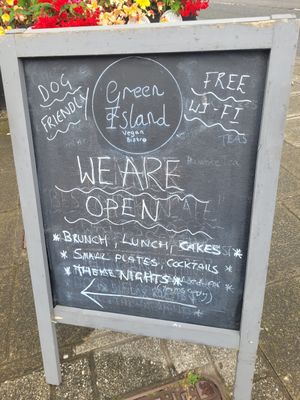 DOG
FRIENDLY
Green
Island
Vegan
Bistro
FREE
WI-FI
WE ARE
OPEN
* BRUNCH, LUNCH, CAKES *
* SMALL PLATES, COCKTAILS *
* THEME NIGHTS *